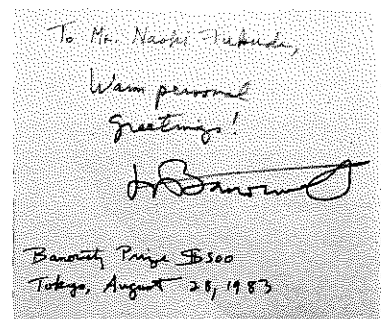 To Mr. Naoki Fukuda,
Warm personal
greetings!
Banovity Prize $500
Tokyo, August 28, 1983